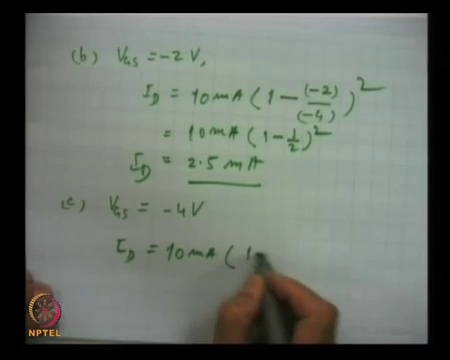 (b) VGS = -2 V,
ID = 10 mA ( 1 - (-2)/(-4) )²
= 10 mA ( 1 - 1/2 )²
ID = 2.5 mA
(c) VGS = -4V
ID = 10 mA ( 1
NPTEL